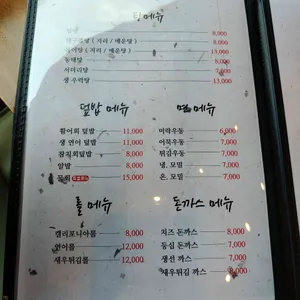 탕 메뉴
알탕 8,000
대구뽈탕 ( 지리 / 매운탕 ) 8,000
( 지리 / 매운탕 ) 13,000
동태탕 8,000
서더리탕 7,000
생 우럭탕 13,000
덮밥 메뉴
활어회 덮밥 11,000
생 연어 덮밥 11,000
참치회덮밥 8,000
알밥 8,000
물회 15,000
면 메뉴
미락우동 6,000
어묵우동 7,000
튀김우동 7,000
냉, 모밀 7,000
온, 모밀 7,000
롤 메뉴
캘리포니아롤 8,000
연어롤 12,000
새우튀김롤 12,000
돈까스 메뉴
치즈 돈까스 8,000
등심 돈까스 7,000
생선 까스 7,000
새우튀김 까스 8,000